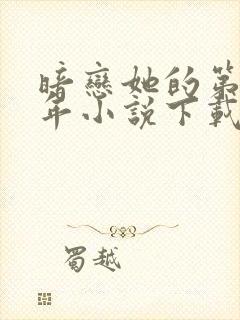 暗戀她的第
年小說下載
蜀越